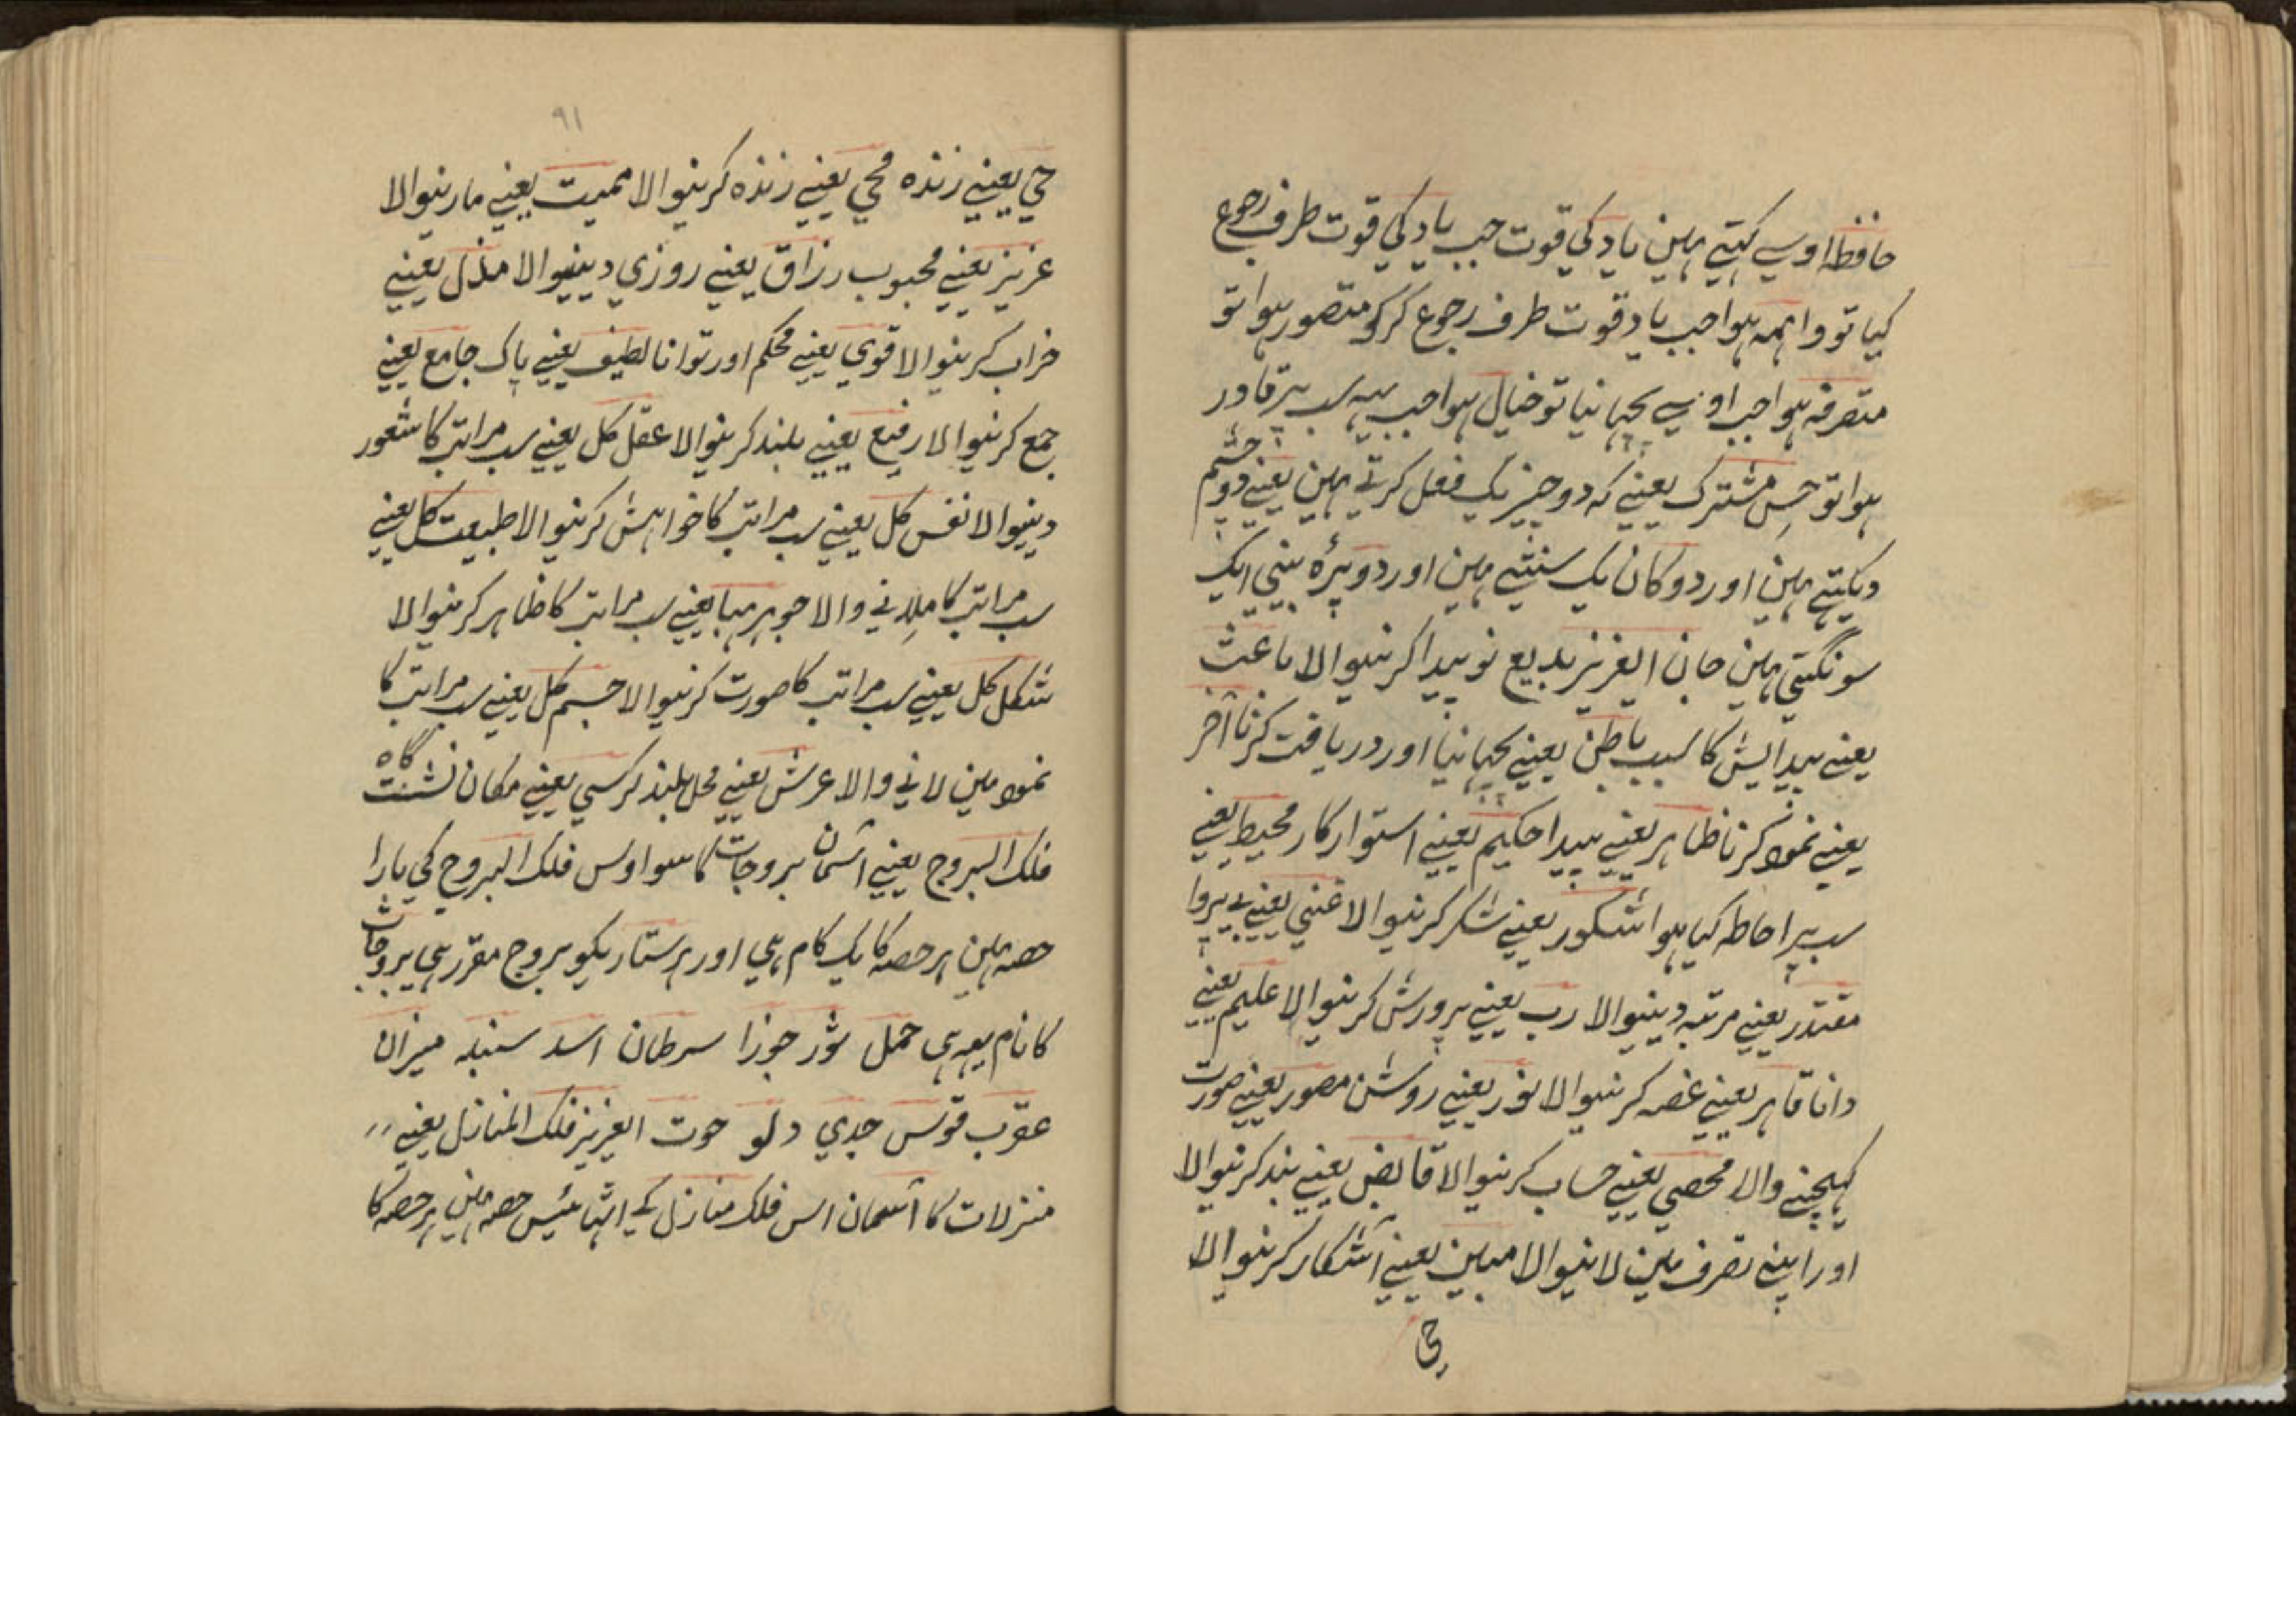 حافظہ اوسے کہتے ہین یاد کی قوت جب یاد کی قوت طرف رجوع
کیا تو واہمہ ہوا جب یاد قوت طرف رجوع کر کو متصور ہوا تو
متصرفہ ہوا جب اوسے پچہانیا تو خیال ہوا جب یہہ سب پر قادر
ہوا تو حِس مشترک یعنے کہ دو چیز یک فعل کرتے ہین یعنے دو چشم
دیکتے ہین اور دو کان یک سنتے ہین اور دو پرۂ بینی ایک
سونگتی ہین جان ایعزیز بدیع نو پیدا کرنیوالا باعث
یعنے پیدایش کا سبب باطن یعنے پچہانیا اور دریافت کرنا آخر
یعنے نمود کرنا ظاہر یعنے پیدا حکیم یعنے استوار کار محیط یعنے
سب پر احاطہ کیا ہوا شکور یعنے شکر کرنیوالا غنی یعنے بے پروا
مقتدر یعنے مرتبہ دینیوالا رب یعنے پرورش کرنیوالا علیم یعنے
دانا قاہر یعنے غصہ کرنیوالا نور یعنے روشن مصور یعنے صورت
کہیچنے والا محصی یعنے حساب کرنیوالا قابض یعنے بند کرنیوالا
اور اپنے تصرف مین لانیوالا مبین یعنے آشکار کرنیوالا
حی
۹۱
حي یعنے زندہ محي یعنے زندہ کرنیوالا ممیت یعنے مارنیوالا
عزیز یعنے محبوب رزاق یعنے روزي دینیوالا مذل یعنے
خراب کرنیوالا قوي یعنے محکم اور توانا لطیف یعنے پاک جامع یعنے
جمع کرنیوالا رفیع یعنے بلند کرنیوالا عقل کل یعنے سب مراتب کا شعور
دینیوالا نفس کل یعنے سب مراتب کا خواہش کرنیوالا طبیعت کل یعنے
سب مراتب کا مِلانے والا جوہر ہبا یعنے سب مراتب کا ظاہر کرنیوالا
شکل کل یعنے سب مراتب کا صورت کرنیوالا جسم کل یعنے سب مراتب کا
نمود مین لانے والا عرش یعنے محل بلند کرسي یعنے مکان نشست گاہ
فلک البروج یعنے آسمان بروجات کا سوا اوس فلک البروج کی بارا
حصہ ہین ہر حصہ کا یک کام ہی اور ہر ستاریکو بروج مقرر ہی بروجات
کا نام یہہ ہی حمل ثور جوزا سرطان اسد سنبلہ میزان
عقرب قوس جدي دلو حوت ایعزیز فلک المنازل یعنے
منزلات کا آسمان اس فلک منازل کے اٹہائیس حصہ ہین ہر حصہ کا